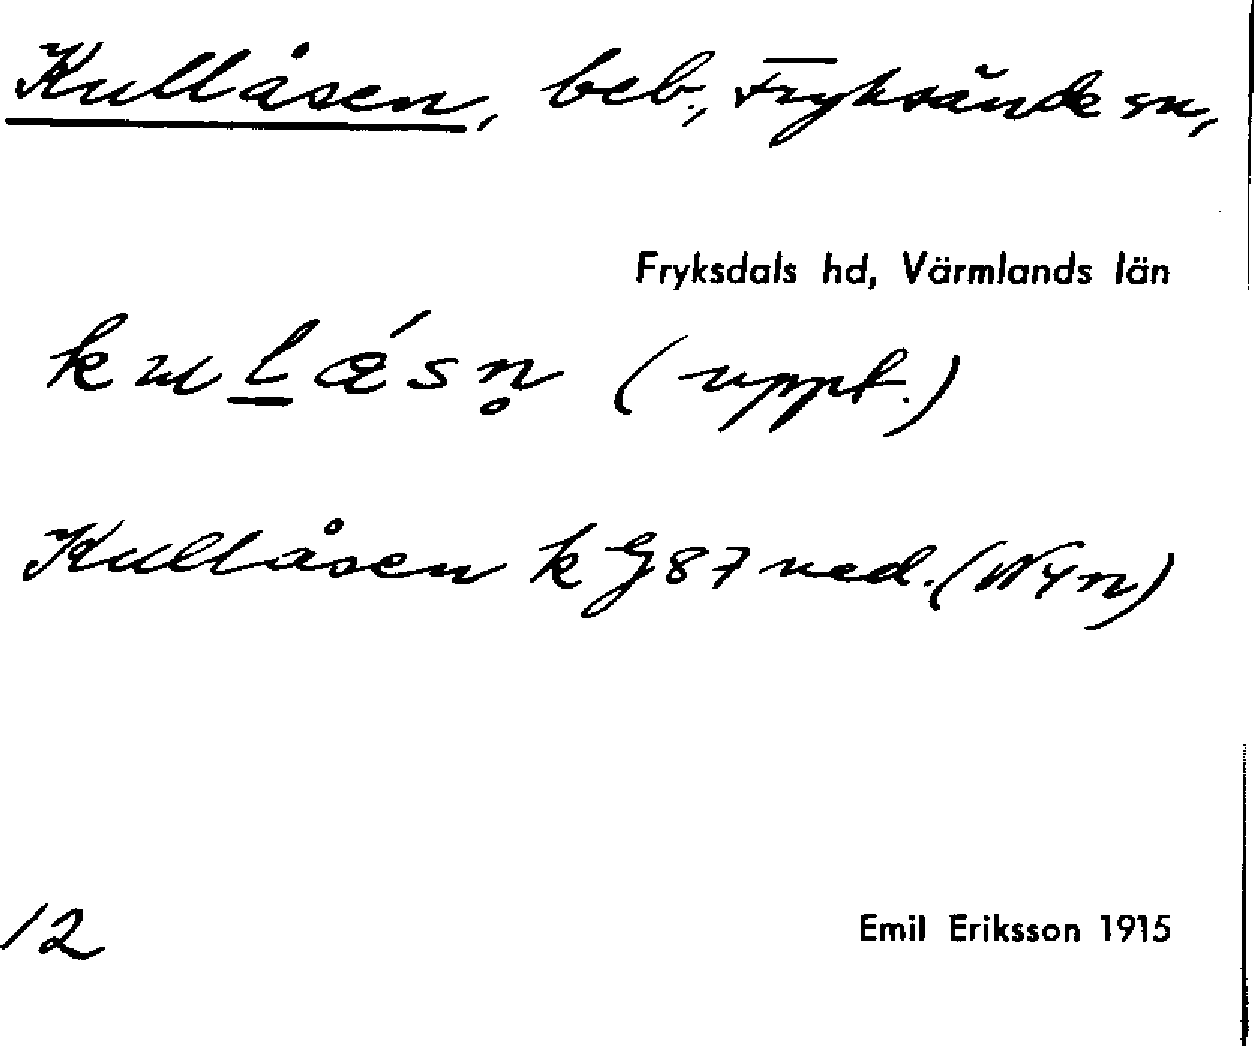 Kullåsen, beb., Fryksände sn,
Fryksdals hd, Värmlands län
kul̲ǽsn̥ (uppt.)
Kullåsen k G 87 ned. (N4n)
12
Emil Eriksson 1915